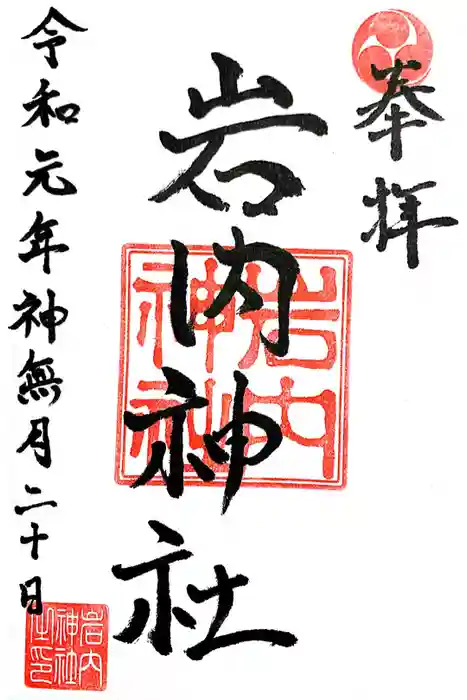 奉拝
岩内神社
岩内
神社
令和元年神無月二十日
岩内
神社
之印